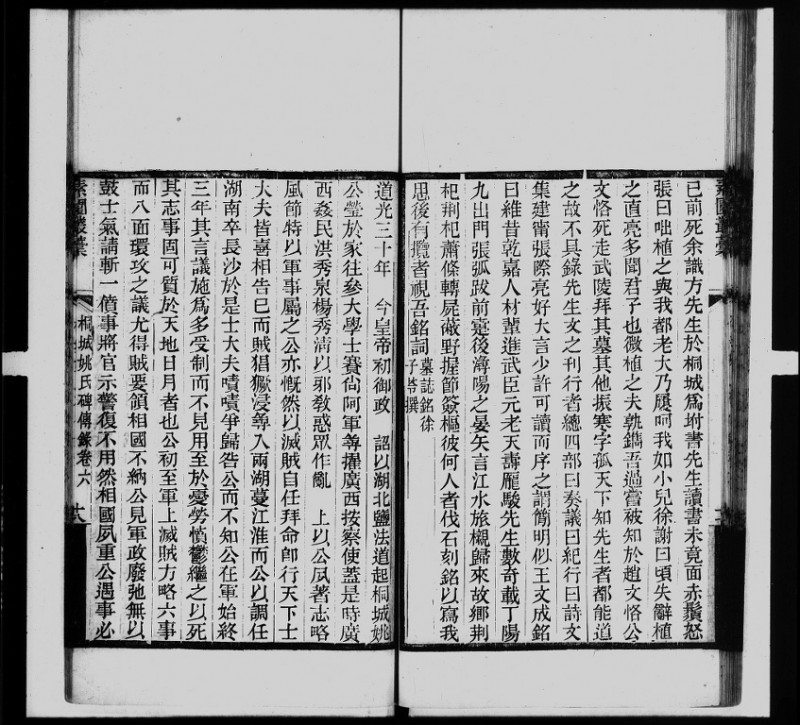 已前死余識方先生於桐城爲坿書先生讀書未竟面赤鬚怒
張曰咄植之與我都老大乃屢呵我如小兒徐謝曰頃失辭植
之直亮多聞君子也微植之夫孰鐫吾過嘗被知於趙文恪公
文恪死走武陵拜其墓其他振寒字孤天下知先生者都能道
之故不具錄先生文之刊行者總四部曰奏議曰紀行曰詩文
集建甯張際亮好大言少許可讀而序之謂簡明似王文成銘
曰維昔乾嘉人材輩進武臣元老天壽龎駿先生數奇載丁陽
九出門張弧跋前疐後潯陽之晏矢言江水旅櫬歸來故鄉荆
杞荆杞蕭條轉屍蔽野握節簽樞彼何人者伐石刻銘以寫我
思後有攬者視吾銘詞墓誌銘徐
子苓撰
道光三十年 今皇帝初御政 詔以湖北鹽法道起桐城姚
公瑩於家往參大學士賽尙阿軍等擢廣西按察使蓋是時廣
西姦民洪秀泉楊秀清以邪敎惑眾作亂 上以公夙著志略
風節特以軍事屬之公亦慨然以滅賊自任拜命卽行天下士
大夫皆喜相告已而賊猖獗浸尋入兩湖蔓江淮而公以調任
湖南卒長沙於是士大夫嘖嘖爭歸咎公而不知公在軍始終
三年其言議施爲多受制而不見用至於憂勞憤鬱繼之以死
其志事固可質於天地日月者也公初至軍上滅賊方略六事
而八面環攻之議尤得賊要領相國不納公見軍政廢弛無以
鼓士氣請斬一僨事將官示警復不用然相國夙重公遇事必
桐城姚氏碑傳錄卷六